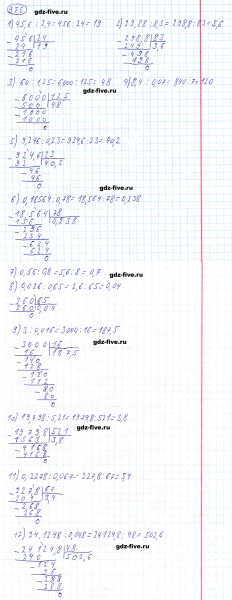 975
1) 45,6 : 2,4 = 456 : 24 = 19 2) 29,88 : 8,3 = 298,8 : 83 = 3,6
456 24 298,8 83
24 19 249 3,6
216 498
216 498
0 0
gdz-five.ru
3) 60 : 1,25 = 6000 : 125 = 48 4) 8,4 : 0,07 = 840 : 7 = 120
6000 125
500 48
1000
1000
0
gdz-five.ru
5) 9,246 : 0,23 = 924,6 : 23 = 40,2
924,6 23
92 40,2
46
46
0
gdz-five.ru
6) 0,18564 : 0,78 = 18,564 : 78 = 0,238
18,564 78
156 0,238
296
234
624
624
0
gdz-five.ru
7) 0,56 : 0,8 = 5,6 : 8 = 0,7
gdz-five.ru
8) 0,026 : 0,65 = 2,6 : 65 = 0,04
260 65
260 0,04
0
9) 3 : 0,016 = 3000 : 16 = 187,5
3000 16
16 187,5
140
128
120
112
80
80
0
gdz-five.ru
10) 19,798 : 5,21 = 1979,8 : 521 = 3,8
1979,8 521
1563 3,8
4168
4168
0
gdz-five.ru
11) 0,2278 : 0,067 = 227,8 : 67 = 3,4
227,8 67
201 3,4
268
268
0
gdz-five.ru
12) 24,1248 : 0,048 = 24124,8 : 48 = 502,6
24124,8 48
240 502,6
124
96
288
288
0
gdz-five.ru